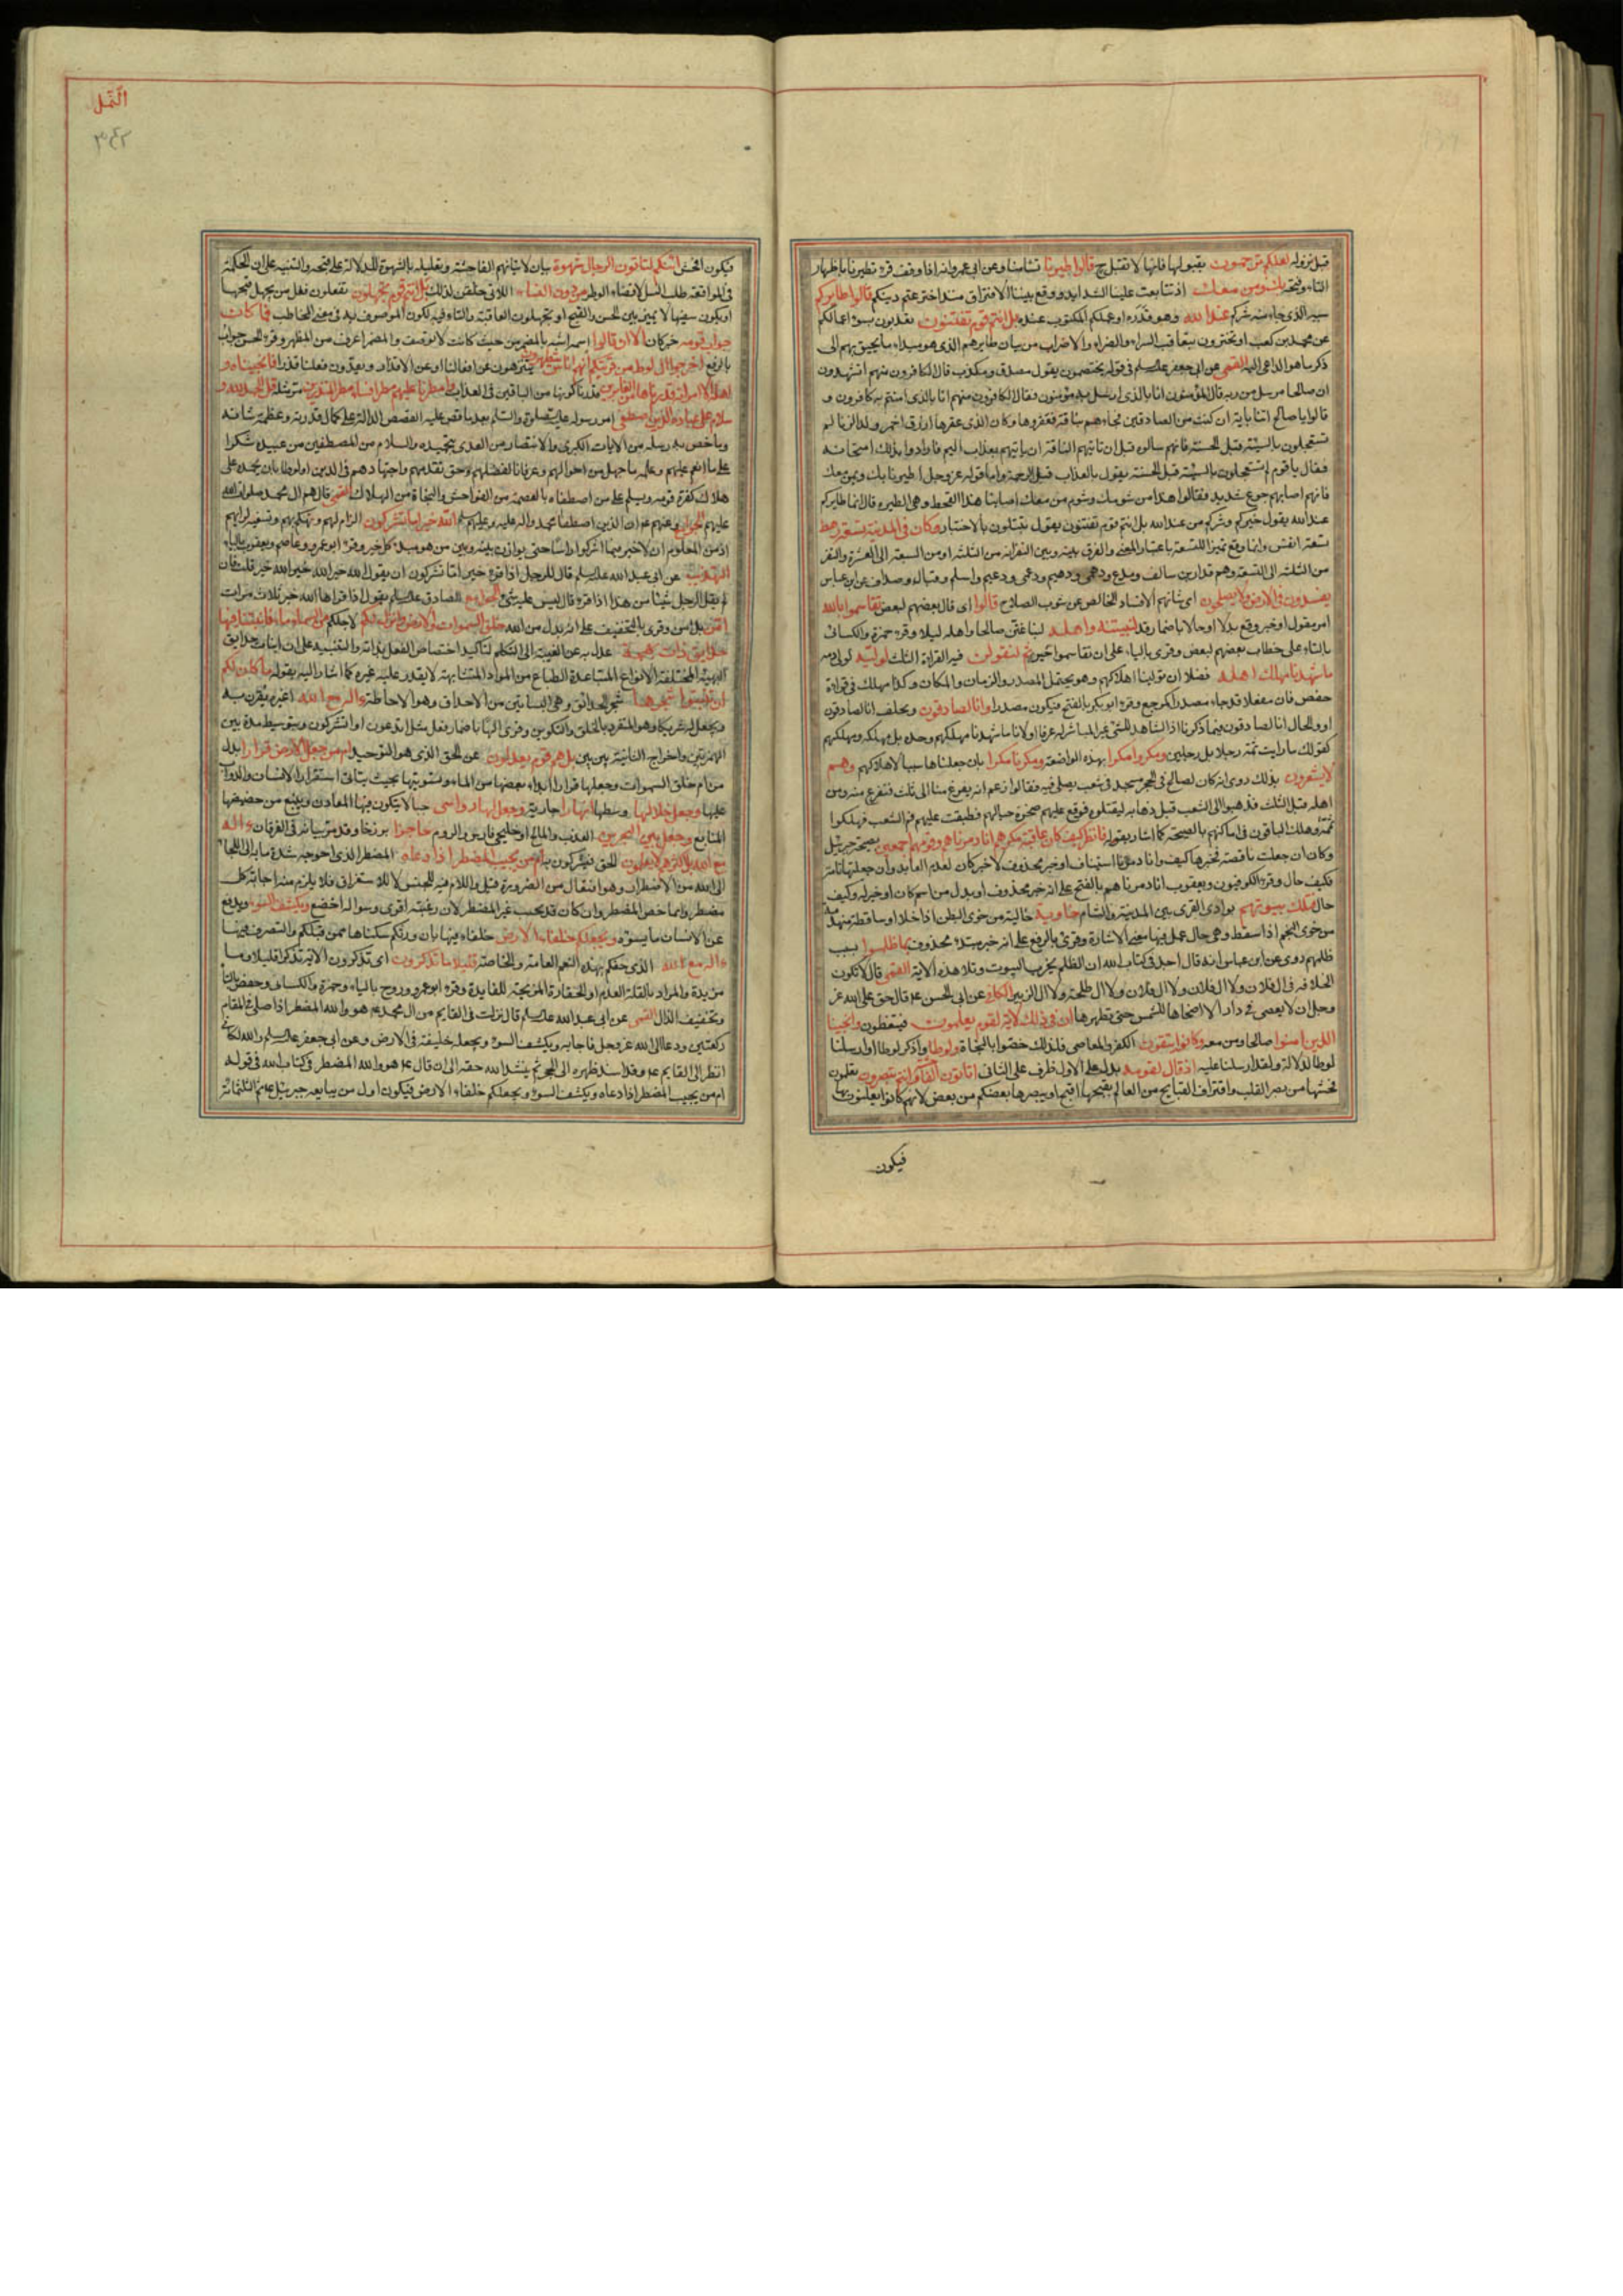 قبل نزوله لعلكم ترحمون بقبولها فانها لا تقبل ح قالوا اطيرنا تشأمنا وعن ابي عمرو انه اذا وقف قرء تطيرنا باظهار
التاء وفتحه بك وبمن معك اذ تتابعت علينا الشدايد ووقع بيننا الافتراق منذ اخترعتم دينكم قالوا طايركم
سببه الذي جاء منه شركم عند الله وهو قدره او عملكم المكتوب عنده بل انتم قوم تفتنون تعذبون بسوء اعمالكم
عن محمد بن كعب او تختبرون بتعاقب السراء والضراء والاضراب من بيان طايرهم الذي هو مبداء ما يحيق بهم الى
ذكر ما هو الداعي اليه القمي عن ابي جعفر عليه السلم في قوله يختصمون يقول مصدق ومكذب قال الكافرون منهم اتشهدون
ان صالحا مرسل من ربه قال المؤمنون انا بالذي ارسل به مؤمنون فقال الكافرون منهم انا بالذي امنتم به كافرون و
قالوا يا صالح ائتنا باية ان كنت من الصادقين فجاءهم بناقة فعقروها وكان الذي عقرها ازرق احمر ولد الزنا لم
تستعجلون بالسيئة قبل الحسنة فانهم سالوه قبل ان تاتيهم الناقة ان ياتيهم بعذاب اليم فارادوا بذلك امتحانه
فقال يا قوم لم تستعجلون بالسيئة قبل الحسنة يقول بالعذاب قبل الرحمة واما قوله عز وجل اطيرنا بك وبمن معك
فانهم اصابهم جوع شديد فقالوا هذا من شومك وشوم من معك اصابنا هذا القحط وهي الطيرة قال انما طايركم
عند الله يقول خيركم وشركم من عند الله بل انتم قوم تفتنون يقول تبتلون بالاختبار وكان في المدينة تسعة رهط
تسعة انفس وانما وقع تميزا للتسعة باعتبار المعنى والفرق بينه وبين النفر انه من الثلثة او من السبعة الى العشرة والنفر
من الثلثة الى التسعة وهم قدار بن سالف ومصدع ودهمي ودهيم ودعمي ودعيم واسلم وقبال وصداف عن ابن عباس
يفسدون في الارض ولا يصلحون اي شانهم الافساد الخالص عن شوب الصلاح قالوا اي قال بعضهم لبعض تقاسموا بالله
امر مقول او خبر وقع بدلا او حالا باضمار قد لنبيتنه واهله لنباغتن صالحا واهله ليلا وقرء حمزة والكسائي
بالتاء على خطاب بعضهم لبعض وقرئ بالياء على ان تقاسموا خبر ثم لنقولن فيه القراءة الثلث لوليه لولي دمه
ما شهدنا مهلك اهله فضلا ان تولينا اهلاكهم وهو يحتمل المصدر والزمان والمكان وكذا مهلك في قراءة
حفص فان مفعلا قد جاء مصدرا كمرجع وقرء ابو بكر بالفتح فيكون مصدرا وانا لصادقون ونحلف انا لصادقون
او والحال انا لصادقون فيما ذكرنا اذا الشاهد للشئ غير المباشر له عرفا او لانا ما شهدنا مهلكهم وحده بل مهلكه ومهلكهم
كقولك ما رايت ثمة رجلا بل رجلين ومكروا مكرا بهذه المواضعة ومكرنا مكرا بان جعلناها سببا لاهلاكهم وهم
لا يشعرون بذلك روى انه كان لصالح في الحجر مسجد في شعب يصلي فيه فقالوا زعم انه يفرغ منا الى ثلث فنفرغ منه ومن
اهله قبل الثلث فذهبوا الى الشعب قبل ذهابه ليقتلوه فوقع عليهم صخرة حيالهم فطبقت عليهم فم الشعب فهلكوا
ثمة وهلك الباقون في اماكنهم بالصيحة كما اشار بقوله فانظر كيف كان عاقبة مكرهم انا دمرناهم وقومهم اجمعين بصيحة جبرئيل
وكان ان جعلت ناقصة فخبرها كيف وانا دمرنا استيناف او خبر محذوف لا خبر كان لعدم العايد وان جعلتها تامة
فكيف حال وقرء الكوفيون ويعقوب انا دمرناهم بالفتح على انه خبر محذوف او بدل من اسم كان او خبر له وكيف
حال فتلك بيوتهم بوادي القرى بين المدينة والشام خاوية خالية من خوى البطن اذا خلا او ساقطة منهدمة
من خوى النجم اذا سقط وهي حال عمل فيها معنى الاشارة وقرئ بالرفع على انه خبر مبتدء محذوف بما ظلموا بسبب
ظلمهم روى عن ابن عباس انه قال اجد في كتاب الله ان الظلم يخرب البيوت وتلا هذه الاية القمي قال لا تكون
الخلافة في ال فلان ولا ال فلان ولا ال فلان ولا ال طلحة ولا ال الزبير الكافي عن ابي الحسن ع قال حق على الله عز
وجل ان لا يعصى في دار الا اضحاها للشمس حتى تطهرها ان في ذلك لاية لقوم يعلمون فيتعظون وانجينا
الذين امنوا صالحا ومن معه وكانوا يتقون الكفر والمعاصي فلذلك خصوا بالنجاة ولوطا واذكر لوطا او ارسلنا
لوطا لدلالة ولقد ارسلنا عليه اذ قال لقومه بدل على الاول ظرف على الثاني اتاتون الفاحشة وانتم تبصرون تعلمون
فحشها من بصر القلب واقتراف القبايح من العالم بقبحها اقبح او يبصرها بعضكم من بعض لانهم كانوا يعلنون بها
فيكون
النّمل
٣٤٣
فيكون افحش ائنكم لتاتون الرجال شهوة بيان لاتيانهم الفاحشة وتعليله بالشهوة للدلالة على قبحه والتنبيه على ان الحكمة
في المواقعة طلب النسل لا قضاء الوطر من دون النساء اللاتي خلقن لذلك بل انتم قوم تجهلون تفعلون فعل من يجهل قبحها
او يكون سفيها لا يميز بين الحسن والقبيح او تجهلون العاقبة والتاء فيه لكون الموصوف به في معنى المخاطب فما كان
جواب قومه خبر كان الا ان قالوا اسمه
بالرفع اخرجوا ال لوط من قريتكم انهم اناس يتطهرون يتنزهون عن افعالنا او عن الاقذار ويعدون فعلنا قذرا فانجيناه و
اهله الا امراته قدرناها من الغابرين قدرنا كونها من الباقين في العذاب وامطرنا عليهم مطرا فساء مطر المنذرين مر مثله قل الحمد لله و
سلام على عباده الذين اصطفى امر رسوله عليه الصلوة والسلم بعد ما قص عليه القصص الدالة على كمال قدرته وعظم شانه
وما خص به رسله من الايات الكبرى والانتصار من العدى بتحميده والسلام من المصطفين من عبيده شكرا
على ما انعم عليهم وعلمه ما جهل من احوالهم وعرفانا لفضلهم وحق تقدمهم واجتهادهم في الدين او لوطا بان يحمده على
هلاك كفرة قومه ويسلم على من اصطفاه بالعصمة من الفواحش والنجاة من الهلاك القمي قال هم ال محمد صلوات الله
عليهم الجوامع وعنهم ع ان الذين اصطفى محمد واله عليه وعليهم السلم آلله خير اما يشركون الزام لهم وتهكم بهم وتسفيه لرايهم
اذ من المعلوم ان لا خير فيما اشركوا راسا حتى يوازن بينه وبين من هو مبدء كل خير وقرء ابو عمرو وعاصم ويعقوب بالياء
التهذيب عن ابي عبد الله عليه السلم قال للرجل اذا قرء خير اما تشركون ان يقول الله خير الله خير الله خير قلت فان
لم يقل الرجل شيئا من هذا اذا قرء قال ليس عليه شئ الجوامع الصادق عليه السلم يقول اذا قراها الله خير ثلاث مرات
امن بل امن وقرئ بالتخفيف على انه بدل من الله خلق السموات والارض وانزل لكم لاجلكم من السماء ماء فانبتنا به
حدايق ذات بهجة عدل به عن الغيبة الى التكلم لتاكيد اختصاص الفعل بذاته والتنبيه على ان انبات حدايق
البهية المختلفة الانواع المتباعدة الطباع من المواد المتشابهة لا يقدر عليه غيره كما اشار اليه بقوله ما كان لكم
ان تنبتوا شجرها شجر الحدائق وهي البساتين من الاحداق وهو الاحاطة ءاله مع الله اغيره يقرن به
ويجعل له شريكا وهو المتفرد بالخلق والتكوين وقرئ الها باضمار فعل مثل اتدعون او اتشركون وبتوسيط مدة بين
الهمزتين واخراج الثانية بين بين بل هم قوم يعدلون عن الحق الذي هو التوحيد امن جعل الارض قرارا بدل
من ام خلق السموات وجعلها قرارا بابداء بعضها من الماء وتسويتها بحيث يتاتى استقرار الانسان والدواب
عليها وجعل خلالها وسطها انهارا جارية وجعل لها رواسي جبالا يتكون فيها المعادن وينبع من حضيضها
المنابع وجعل بين البحرين العذب والمالح او خليجي فارس والروم حاجزا برزخا وقد مر بيانه في الفرقان ءاله
مع الله بل اكثرهم لا يعلمون الحق فيشركون به ام من يجيب المضطر اذا دعاه المضطر الذي احوجه شدة ما به الى اللجاء
الى الله من الاضطرار وهو افتعال من الضرورة قيل واللام فيه للجنس لا للاستغراق فلا يلزم منه اجابة كل
مضطر وانما خص المضطر وان كان قد يجيب غير المضطر لان رغبته اقوى وسواله اخضع ويكشف السوء ويدفع
عن الانسان ما يسوؤه ويجعلكم خلفاء الارض خلفاء فيها بان ورثكم سكناها ممن قبلكم والتصرف فيها
ءاله مع الله الذي حفكم بهذه النعم العامة والخاصة قليلا ما تذكرون اي تذكرون الاية تذكرا قليلا وما
مزيدة والمراد بالقلة العدم او الحقارة المزيحة للفايدة وقرء ابو عمرو وروح بالياء وحمزة والكسائي وحفص بالتاء
وتخفيف الذال القمي عن ابي عبد الله عليه السلم قال نزلت في القايم من ال محمد ع هو والله المضطر اذا صلى في المقام
ركعتين ودعا الى الله عز وجل فاجابه ويكشف السوء ويجعله خليفة في الارض وعن ابي جعفر عليه السلم والله لكاني
انظر الى القايم ع وقد اسند ظهره الى الحجر ثم ينشد الله حقه الى ان قال ع هو والله المضطر في كتاب الله في قوله
ام من يجيب المضطر اذا دعاه ويكشف السوء ويجعلكم خلفاء الارض فيكون اول من يبايعه جبرئيل ع ثم الثلثمائة